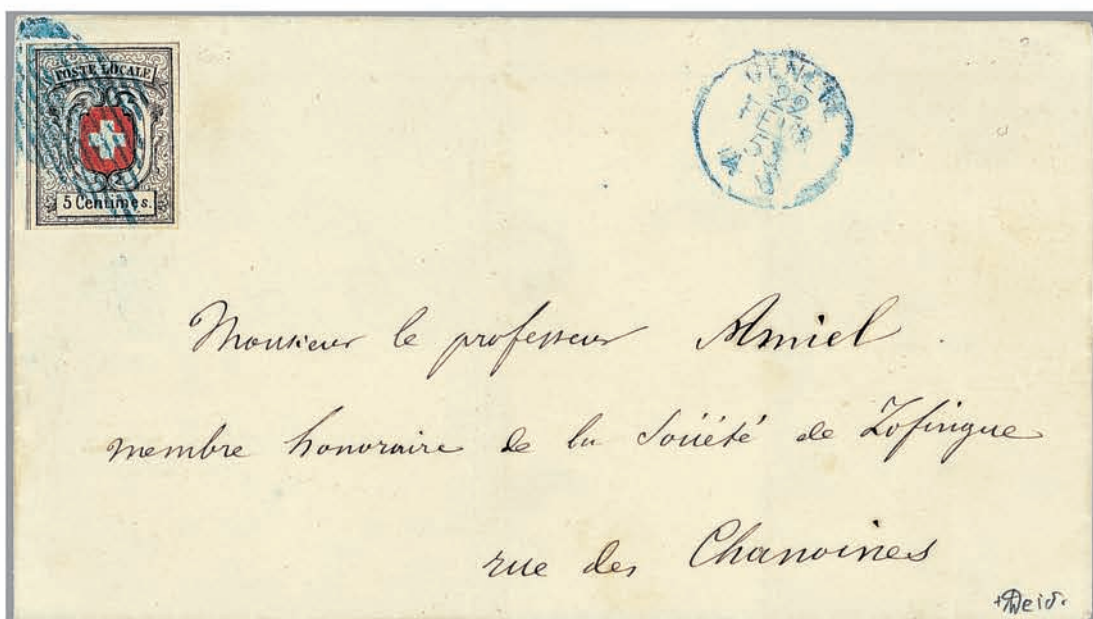 POSTE LOCALE
5 Centimes.
GENEVE
22
FEVR
53
Monsieur le professeur Amiel
membre honoraire de la Société de Zofingue
rue des Chanoines